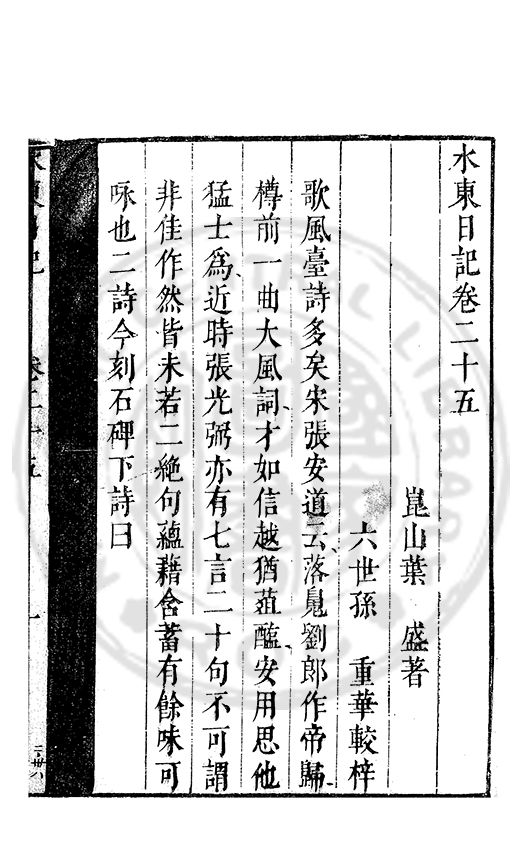 水東日記卷二十五
崑山葉　盛著
六世孫　重華較梓
歌風臺詩多矣宋張安道云落䰟劉郎作帝歸
樽前一曲大風詞才如信越猶菹醢安用思他
猛士為近時張光弼亦有七言二十句不可謂
非佳作然皆未若二絶句蘊藉含蓄有餘味可
咏也二詩今刻石碑下詩曰
水東日記　卷二十五　一